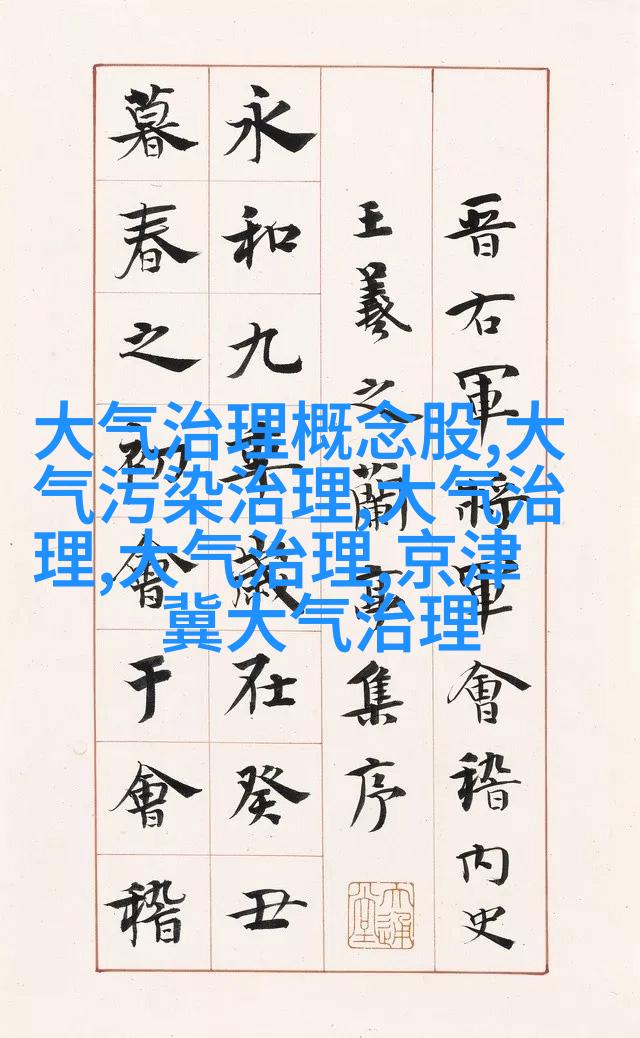 晋右軍將軍會稽内史
王羲之蘭亭集序
永和九年歲在癸丑
暮春之初會于會稽
大气治理概念股,大
气污染治理,大气治
理,大气治理,京津
冀大气治理